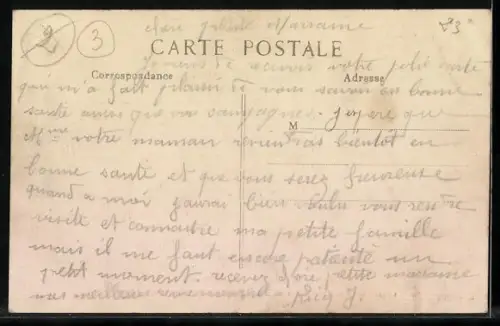 2
3
23
chère petite Marraine
CARTE POSTALE
Je viens de recevoir votre jolie carte
Correspondance
Adresse
qui m'a fait plaisir de vous savoir en bonne
santé ainsi que vos campagnes. J'espère que
M
Mme votre maman reviendras bientôt en
bonne santé et que vous serez heureuse
quand a moi j'aurai bien voulu vous rendre
visite et connaitre ma petite famille
mais il me faut encore patienté un
petit moment. recevez chère petite marraine
mes meilleurs